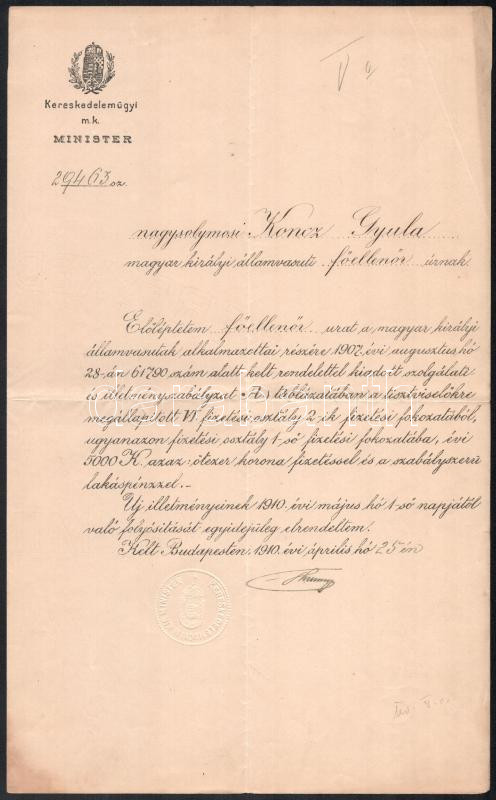 Kereskedelemügyi
m.k.
MINISTER
29463 sz.
V
nagysolymosi Koncz Gyula
magyar királyi államvasuti főellenőr úrnak
Előléptetem főellenőr urat a magyar királyi
államvasutak alkalmazottai részére 1907. évi augusztus hó
28-án 61790. szám alatt kelt rendelettel kiadott szolgálati
és illetményszabályzat A) táblázatában a tisztviselőkre
megállapitott VI fizetési osztály 2-ik fizetési fokozatából,
ugyanazon fizetési osztály 1-ső fizetési fokozatába, évi
5000 K. azaz: ötezer korona fizetéssel és a szabályszerü
lakáspénzzel.
Uj illetményeinek 1910. évi május hó 1-ső napjától
való folyósitását egyidejüleg elrendeltem.
Kelt Budapesten, 1910. évi április hó 25 én
darabanth